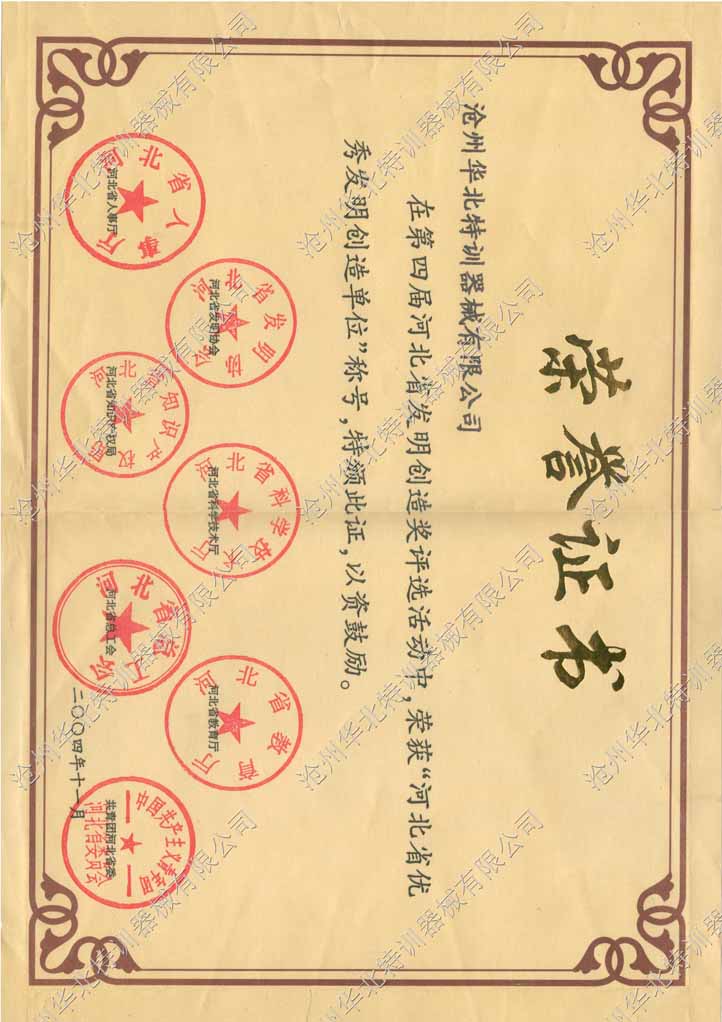 荣誉证书
沧州华北特训器械有限公司
在第四届河北省发明创造奖评选活动中，荣获“河北省优
秀发明创造单位”称号，特颁此证，以资鼓励。
河北省人事厅
河北省发明协会
河北省知识产权局
河北省科学技术厅
河北省总工会
河北省教育厅
共青团河北省委
二〇〇四年十一月
沧州华北特训器械有限公司